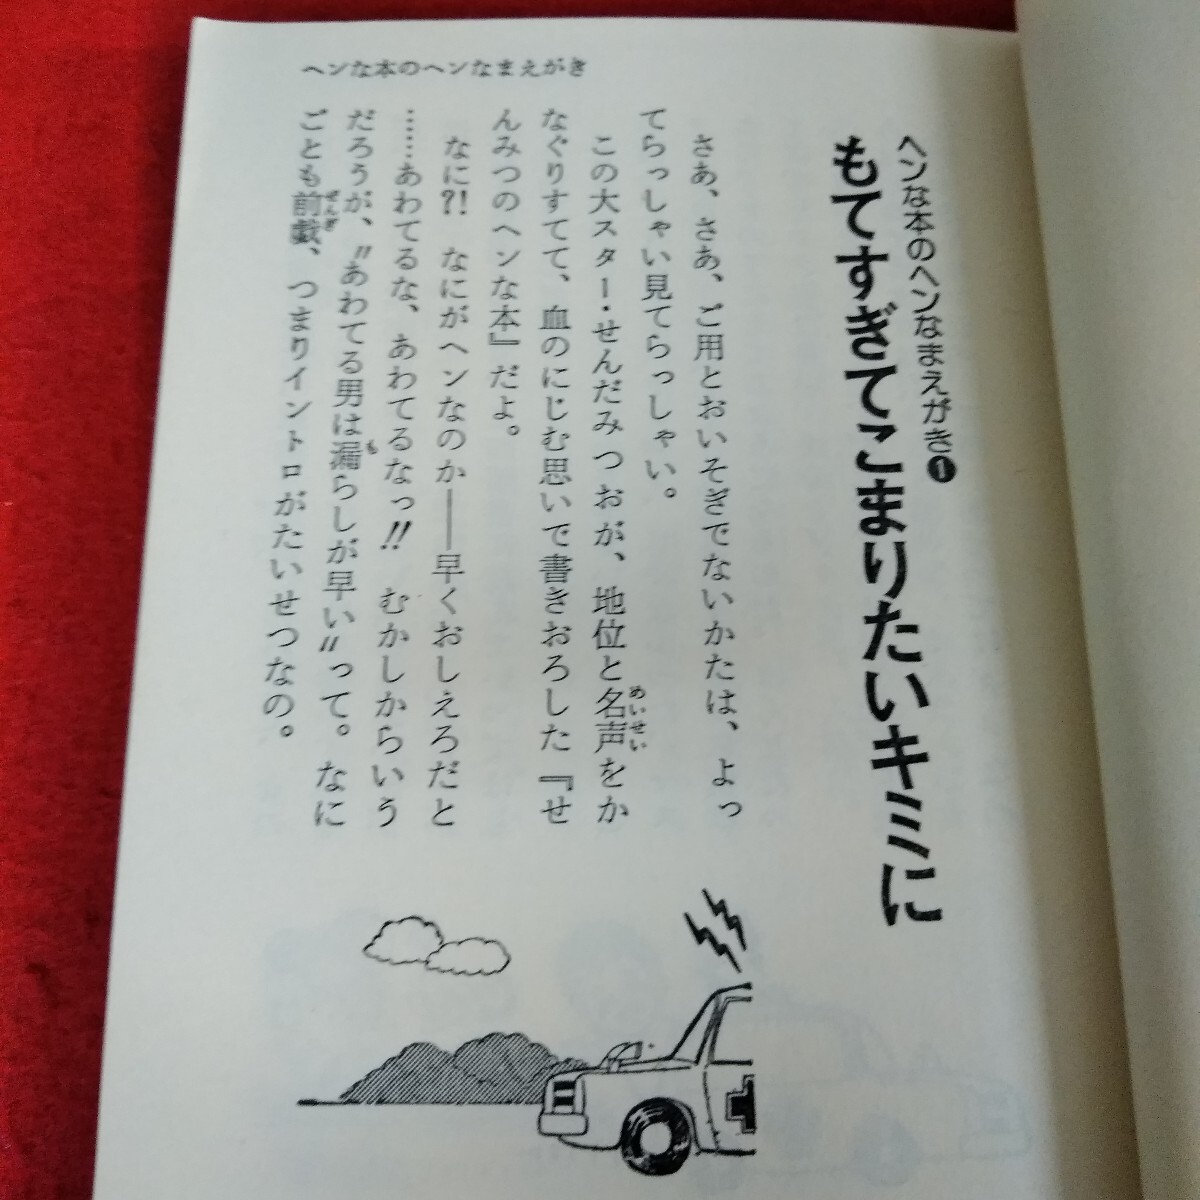 ヘンな本のヘンなまえがき
ヘンな本のヘンなまえがき❶
もてすぎてこまりたいキミに
さあ、さあ、ご用とおいそぎでないかたは、よっ
てらっしゃい見てらっしゃい。
この大スター・せんだみつおが、地位と名声をか
めいせい
なぐりすてて、血のにじむ思いで書きおろした『せ
んみつのヘンな本』だよ。
なに?! なにがヘンなのか――早くおしえろだと
……あわてるな、あわてるなっ!! むかしからいう
だろうが、〝あわてる男は漏らしが早い〟って。なに
も
ごとも前戯、つまりイントロがたいせつなの。
ぜんぎ